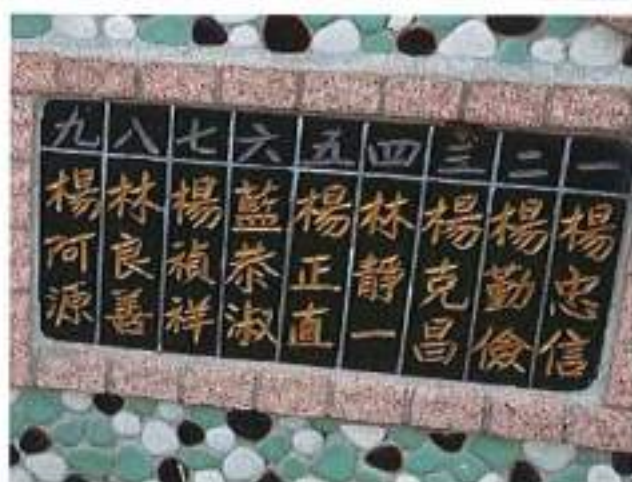 一 楊忠信
二 楊勤儉
三 楊克昌
四 林靜一
五 楊正直
六 藍恭淑
七 楊禎祥
八 林良善
九 楊阿源